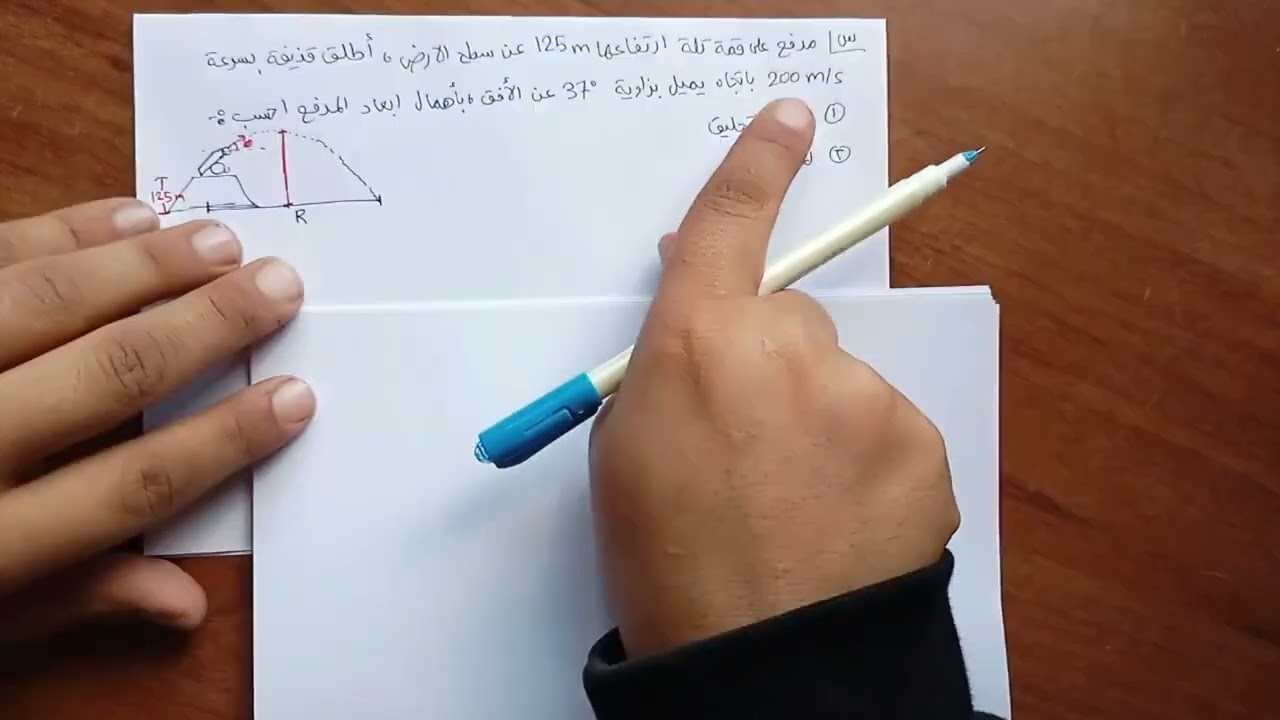 س/ مدفع على قمة تلة ارتفاعها 125m عن سطح الارض، أطلق قذيفة بسرعة
200 m/s باتجاه يميل بزاوية 37° عن الأفق، بأهمال ابعاد المدفع احسب :-
①
②
125m
R